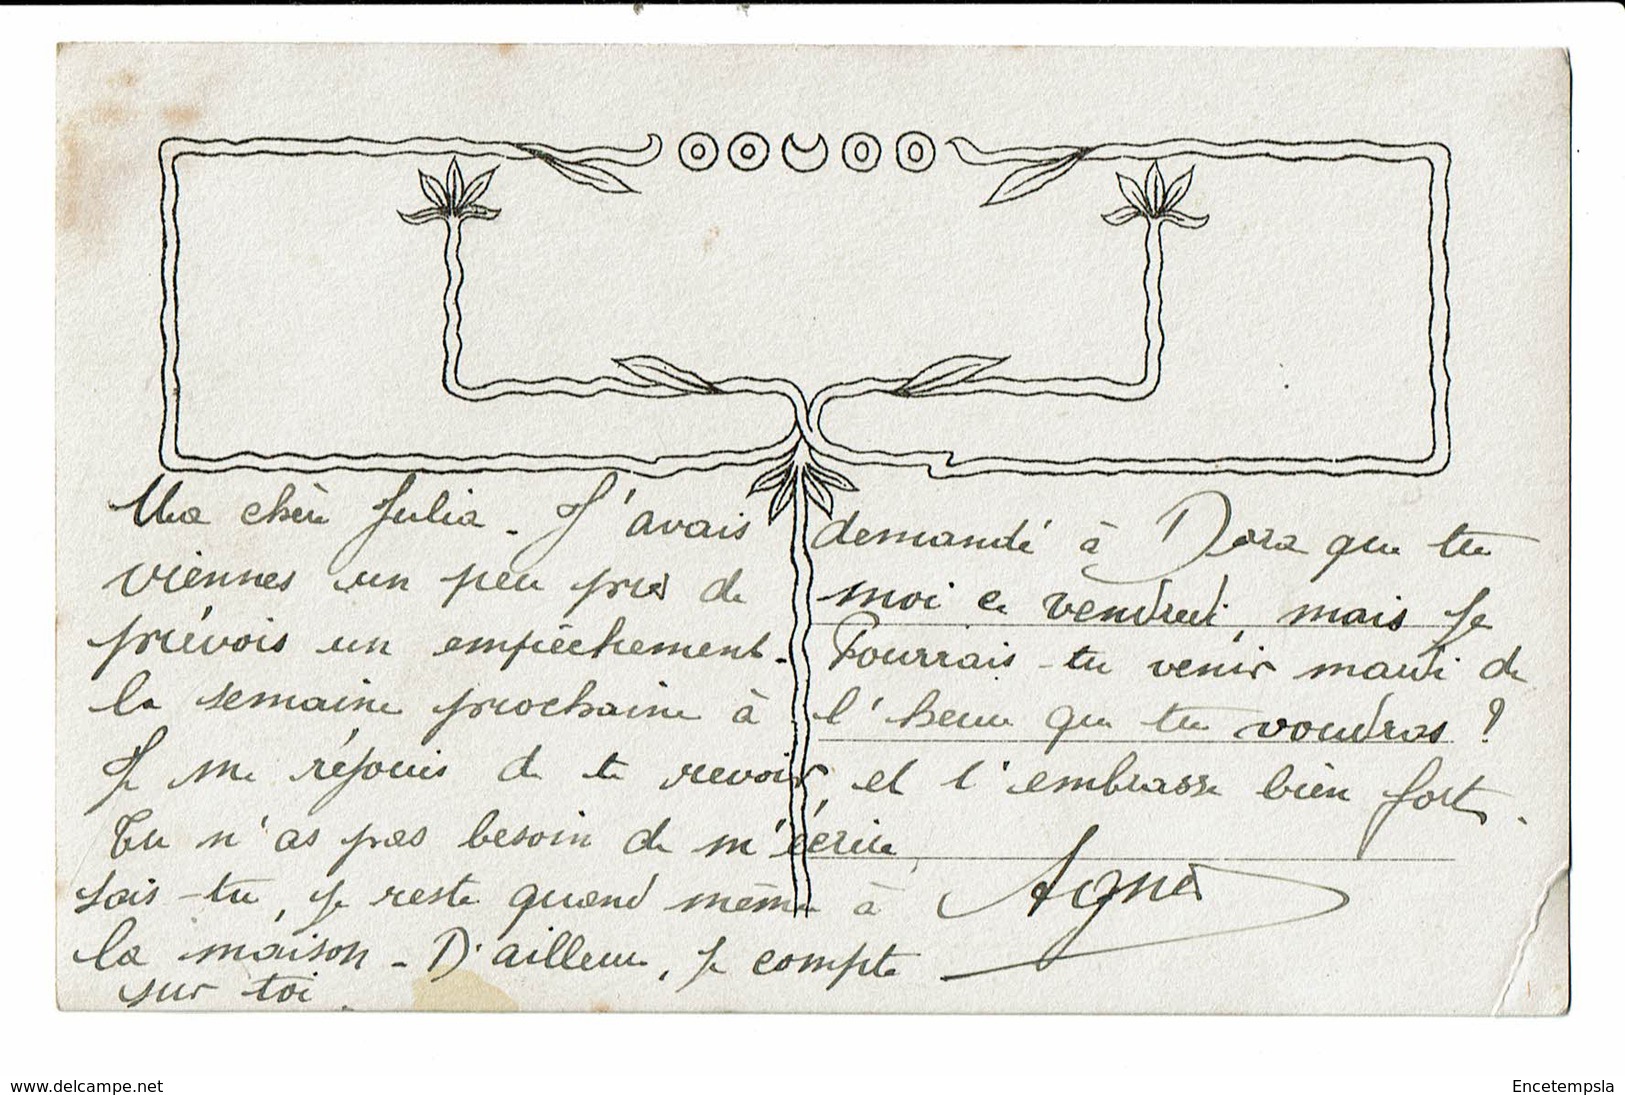 Ma chère Julia - J'avais demandé à Dora que tu
viennes un peu près de moi ce vendredi, mais je
prévois un empêchement. Pourrais-tu venir mardi de
la semaine prochaine à l'heure que tu voudras ?
Je me réjouis de te revoir et t'embrasse bien fort.
Tu n'as pas besoin de m'écrire,
sais-tu, je reste quand même à Agnès
la maison - D'ailleurs, je compte
sur toi.
www.delcampe.net Encetempsla